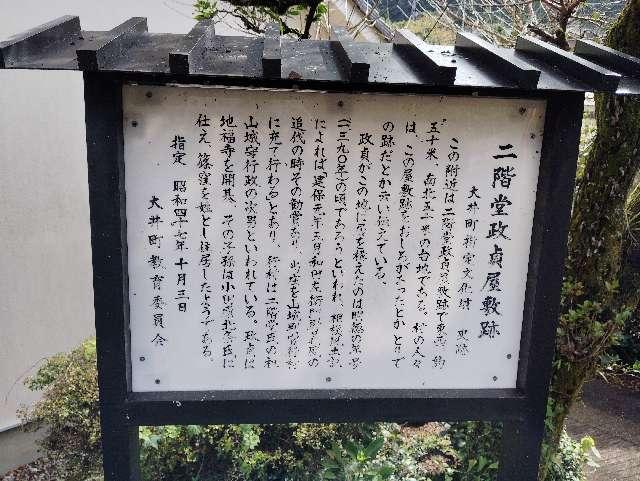 二階堂政貞屋敷跡
大井町指定文化財 史跡
この附近は二階堂政貞の屋敷跡で東西約
五十米、南北五十米の台地である。村の人々
は、この屋敷跡をおしろがくったとかとりで
の跡だとか云い伝えている。
政貞がこの地に居を構えたのは
(一三九〇年)の頃であろうといわれ、相模風土記
によれば「建保元年五月和田左衛門尉義盛の
追代の時その勧賞あり、
に充て行わる」とあり、行村は二階堂氏の祖
山城守行政の次男といわれている。政貞は
地福寺を開基、その子孫は小田原北条氏に
仕え、篠窪を姓とし住居したようである。
指定 昭和四十七年十月三日
大井町教育委員会